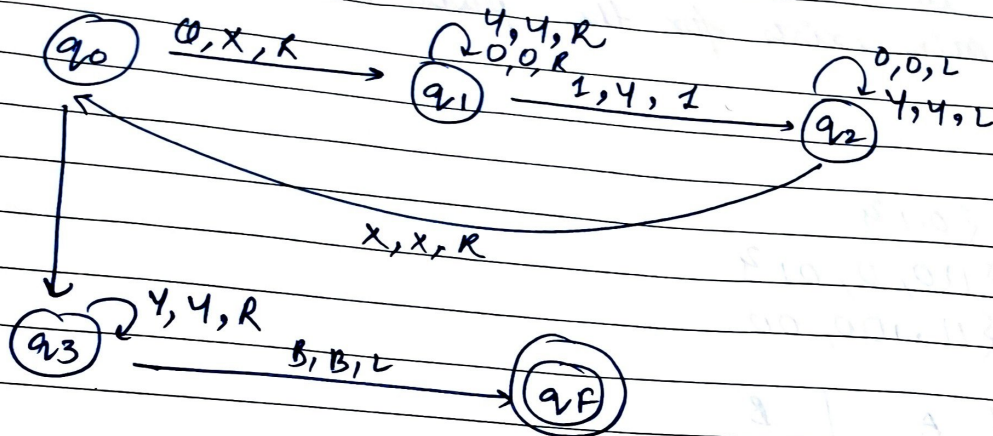 q0
0, X, R
Y, Y, R
0, 0, R
q1
1, Y, 1
0, 0, L
Y, Y, L
q2
X, X, R
q3
Y, Y, R
B, B, L
qF